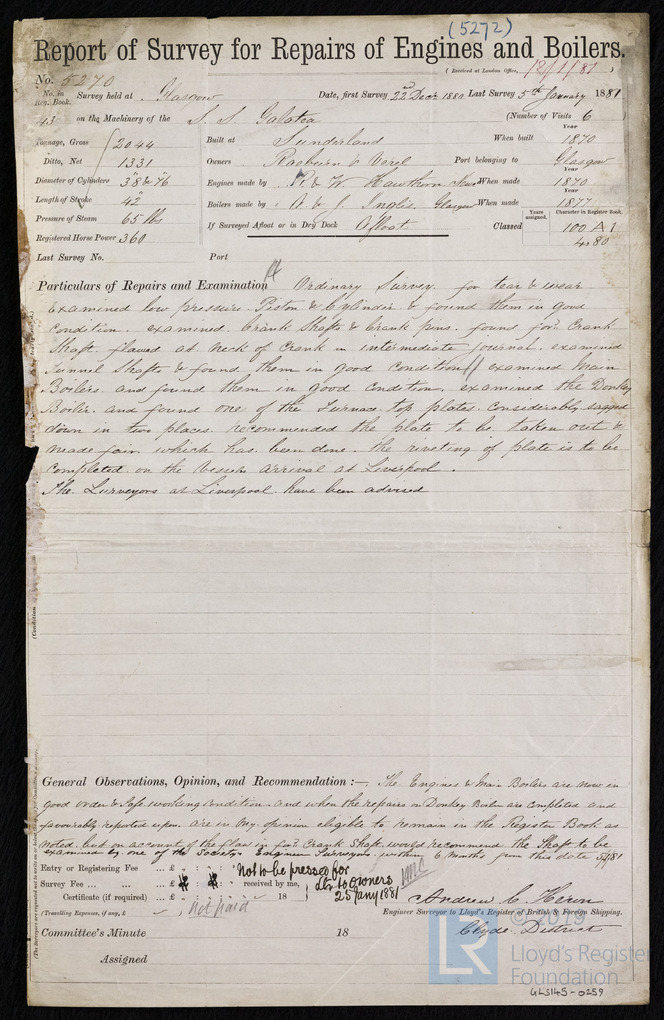 (5272)
Report of Survey for Repairs of Engines and Boilers.
(Received at London Office, 12/1/81)
No. 5270
No. in Reg. Book. Survey held at Glasgow Date, first Survey 22nd Decr 1880 Last Survey 5th January 1881
43 on the Machinery of the S. S. Galatea (Number of Visits 6
Tonnage, Gross 2044 Built at Sunderland When built Year 1870
Ditto, Net 1331 Owners Raeburn & Verel Port belonging to Glasgow
Diameter of Cylinders 38 & 76 Engines made by R. & W. Hawthorn When made Year 1870
Length of Stroke 42" Boilers made by A & J. Inglis. Glasgow When made Year 1877
Pressure of Steam 65 lbs If Surveyed Afloat or in Dry Dock Afloat Classed Years assigned. Character in Register Book. 100 A 1
Registered Horse Power 360 4,80
Last Survey No. Port
Particulars of Repairs and Examination Ordinary Survey for tear & wear
Examined low pressure Piston & Cylinder & found them in good
condition. examined Crank Shafts & Crank pins. found for: Crank
Shaft. flawed at neck of Crank in intermediate journal. examined
Tunnel Shafts & found them in good condition // examined Main
Boilers and found them in good condition. examined the Donkey
Boiler. and found one of the Furnace top plates. considerably sagged
down in two places. recommended the plate to be taken out &
made fair which has been done. the riveting of plate is to be
completed on the Vessels arrival at Liverpool.
The Surveyors at Liverpool have been advised
(Condition
General Observations, Opinion, and Recommendation :— The Engines & Main Boilers are now in
good order & Safe working condition. and when the repairs on Donkey Boiler are completed and
favourably reported upon. are in my opinion eligible to remain in the Register Book as
noted. but on account of the flaw in for: Crank Shaft. would recommend the Shaft to be
examined by one of the Society's Engineer Surveyors within 6 months from this date 5/1/81
Entry or Registering Fee ... £ Not to be pressed for
Survey Fee ... £ received by me, Lr to owners
Certificate (if required) ... £ 18 25 Jany 1881
(Travelling Expenses, if any, £ not paid
Andrew C. Heron
Engineer Surveyor to Lloyd's Register of British & Foreign Shipping.
Clyde District
Committee's Minute 18
Assigned
© 2019
LR Lloyd's Register
Foundation
GLS145-0259